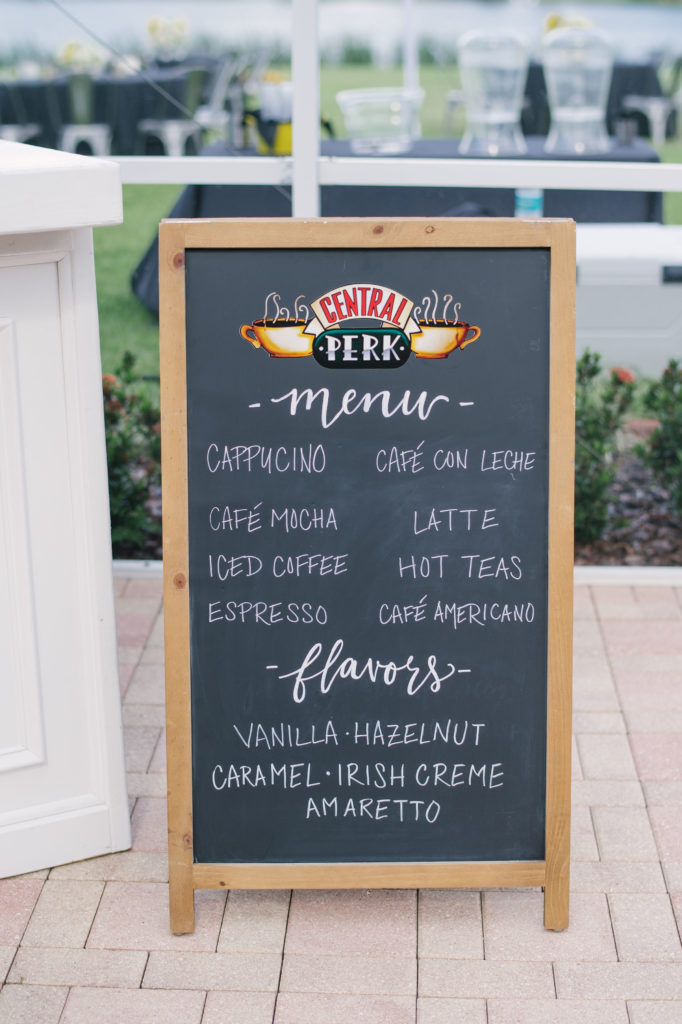 CENTRAL
PERK
- menu -
CAPPUCINO CAFÉ CON LECHE
CAFÉ MOCHA LATTE
ICED COFFEE HOT TEAS
ESPRESSO CAFÉ AMERICANO
- flavors -
VANILLA · HAZELNUT
CARAMEL · IRISH CREME
AMARETTO